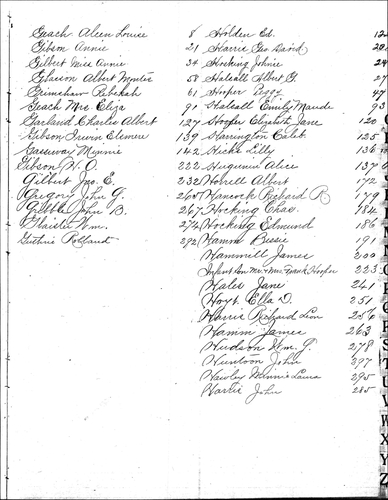 Geach Aleen Louise 8
Gibson Annie 21
Gilbert Miss Annie 34
Gleason Albert 58
Grimshaw Rebekah 61
Geach Mrs Eliza 91
Garland Charles Albert 127
Gibson Irwin Elemer 139
Gassway Minnie 142
Gibson W. J. 222
Gilbert Jno. E. 232
Gregory John G. 265
Gribble John B. 267
Glaister Wm. 274
Guthrie Rolland 292
Holden Ed. 12
Harris Geo David 20
Hocking Johnie 24
Halsall Albert G. 27
Hooper Peggy 47
Halsall Emily Maude 93
Hoofer Elizabeth Jane 120
Harrington Caleb 125
Hicks Lilly 136
Hugunin Alice 137
Horrell Albert 172
Hancock Richard R. 179
Hocking Chas. 184
Hocking Edmund 186
Hamm Bessie 191
Hammill James 200
Infant son Mr. & Mrs. Frank Hoofer 223
Hales Jane 241
Hoyt Ella D. 251
Harris Richard Leon 256
Hamm James 263
Hudson Wm. J. 278
Huntoon John 297
Hawley Minnie Laura 295
Harris John 285
S
T
W
X
Y
Z